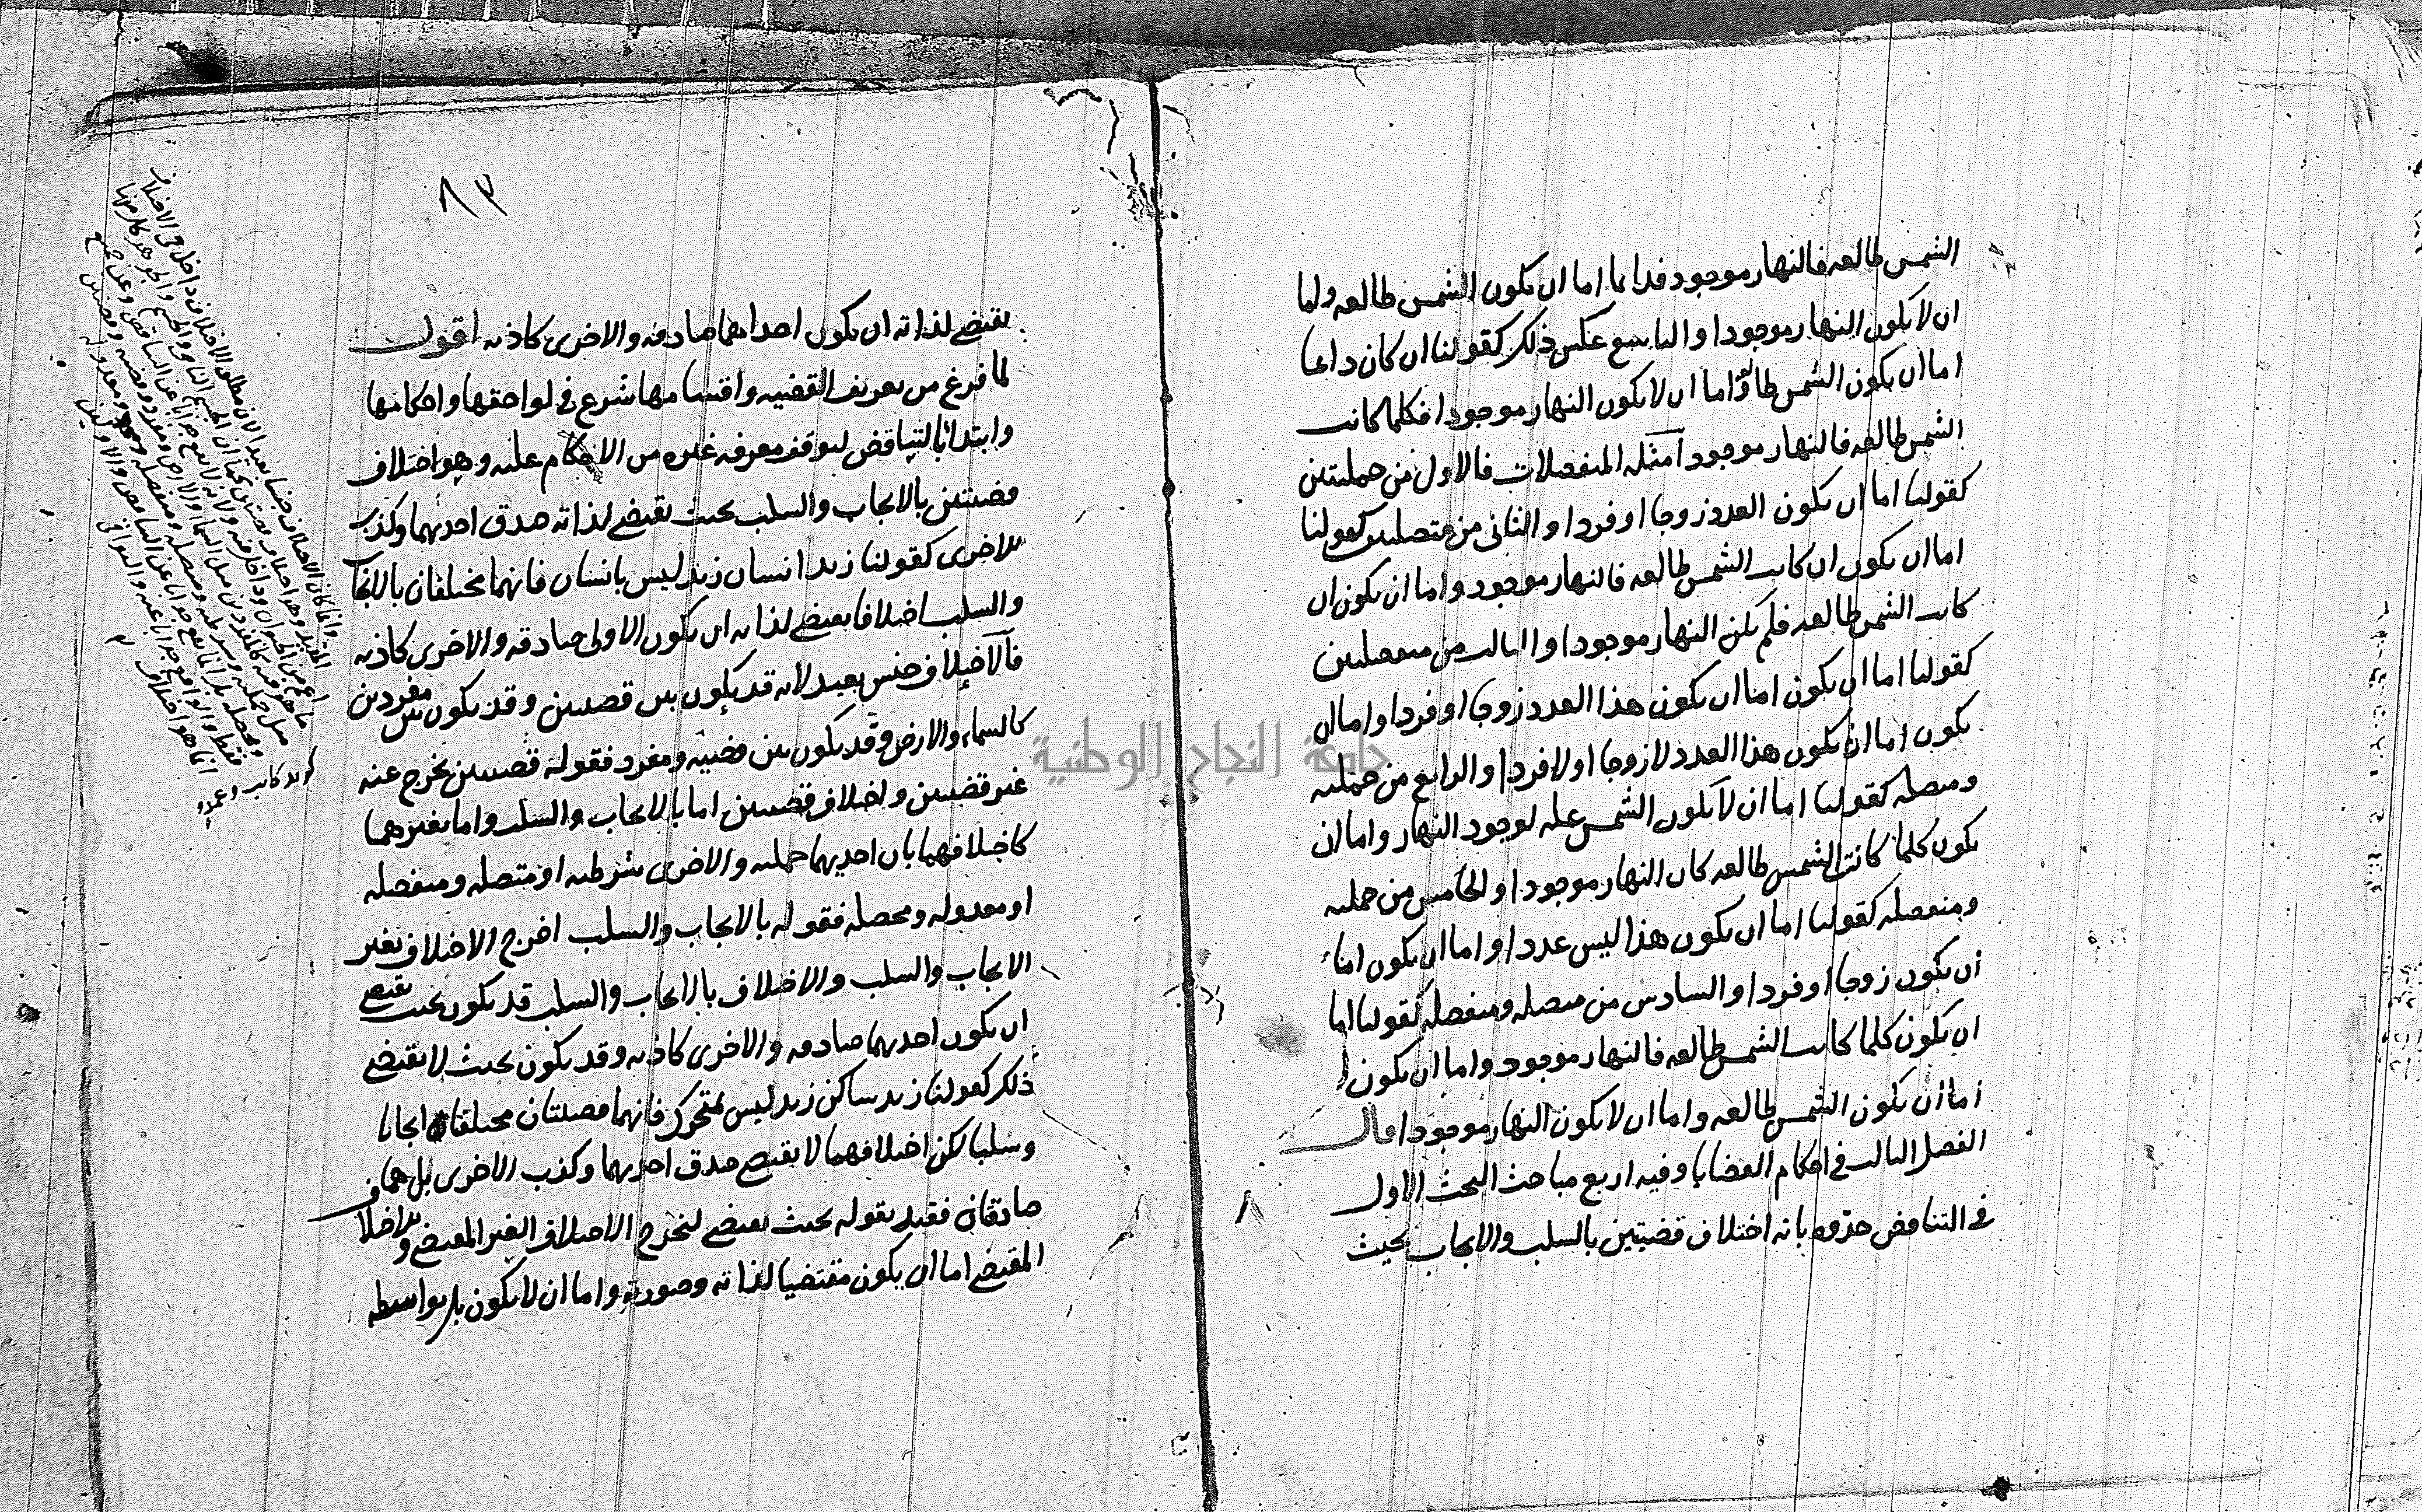 الشمس طالعه فالنهار موجود فدايما اما ان يكون الشمس طالعه واما
ان لا يكون النهار موجودا والتاسع عكس ذلك كقولنا ان كان دايما
اما ان يكون الشمس طالعة اما ان لا يكون النهار موجودا فكلما كانت
الشمس طالعه فالنهار موجود امثله المنفصلات فالاول من حمليتين
كقولنا اما ان يكون العدد زوجا او فردا والثانى من متصلتين كقولنا
اما ان يكون ان كانت الشمس طالعه فالنهار موجود واما ان يكون ان
كانت الشمس طالعه فلم يكن النهار موجودا والثالث من منفصلتين
كقولنا اما ان يكون اما ان يكون هذا العدد زوجا او فردا واما ان
يكون اما ان يكون هذا العدد لا زوجا او لا فردا والرابع من حمليه
ومتصله كقولنا اما ان لا يكون الشمس عله لوجود النهار واما ان
يكون كلما كانت الشمس طالعه كان النهار موجودا والخامس من حمليه
ومنفصله كقولنا اما ان يكون هذا ليس عددا واما ان يكون اما
ان يكون زوجا او فردا والسادس من متصله ومنفصله كقولنا اما
ان يكون كلما كانت الشمس طالعه فالنهار موجود واما ان يكون
اما ان يكون الشمس طالعه واما ان لا يكون النهار موجودا قال
الفصل الثالث في احكام القضايا وفيه اربع مباحث البحث الاول
في التناقض حدوه بانه اختلاف قضيتين بالسلب والايجاب بحيث
٨٣
يقتضي لذاته ان يكون احداهما صادقه والاخرى كاذبه اقول
لما فرغ من تعريف القضيه واقسامها شرع في لواحقها واحكامها
وابتدا بالتناقض لتوقف معرفه غيره من الاحكام عليه وهو اختلاف
قضيتين بالايجاب والسلب بحيث يقتضي لذاته صدق احديهما وكذب
الاخرى كقولنا زيد انسان زيد ليس بانسان فانهما مختلفان بالايجاب
والسلب اختلافا يقتضي لذاته ان يكون الاولى صادقه والاخرى كاذبه
فالاختلاف جنس بعيد لانه قد يكون بين قضيتين وقد يكون بين مفردين
كالسماء والارض وقد يكون بين قضيه ومفرد فقوله قضيتين يخرج عنه
غير قضيتين واختلاف قضيتين اما بالايجاب والسلب واما بغيرهما
كاختلافهما بان احديهما حمليه والاخرى شرطيه او متصله ومنفصله
او معدوله ومحصله فقوله بالايجاب والسلب اخرج الاختلاف بغير
الايجاب والسلب والاختلاف بالايجاب والسلب قد يكون بحيث يقتضي
ان يكون احديهما صادقه والاخرى كاذبه وقد يكون بحيث لا يقتضي
ذلك كقولنا زيد ساكن زيد ليس بمتحرك فانهما قضيتان مختلفتان ايجابا
وسلبا لكن اختلافهما لا يقتضي صدق احديهما وكذب الاخرى بل هما
صادقان فقيد بقوله بحيث يقتضي ليخرج الاختلاف الغير المقتضي والاختلاف
المقتضي اما ان يكون مقتضيا لذاته وصورته واما ان لا يكون بل بواسطه
جامعة النجاح الوطنية